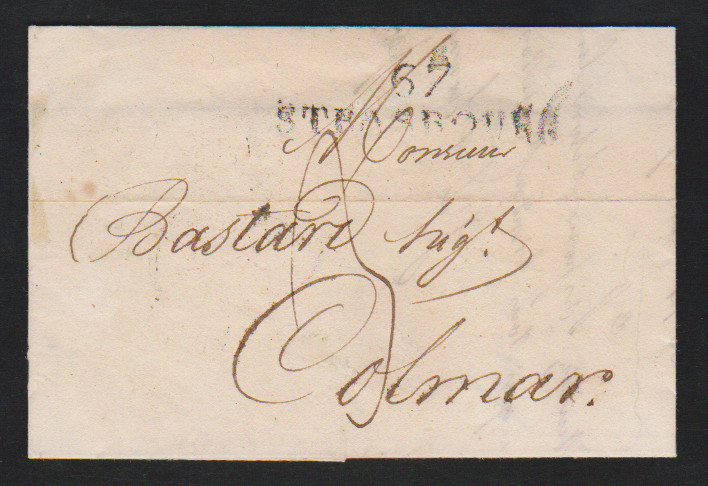 67
STRASBOURG
Monsieur
Bastard
Colmar.